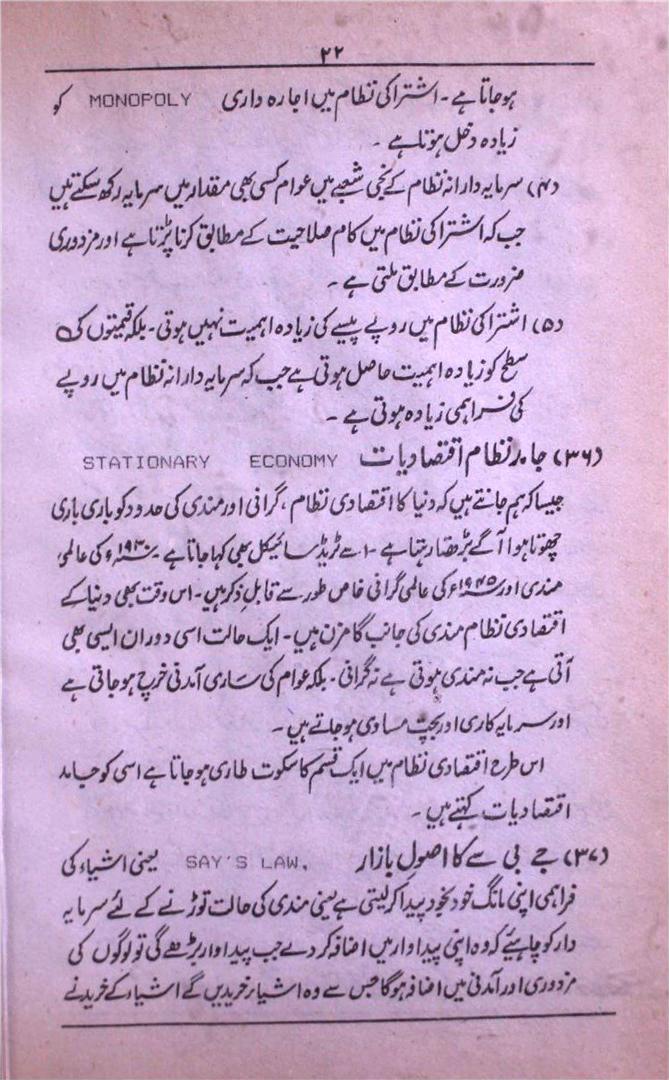 ۲۲
ہوجاتا ہے۔ اشتراکی نظام میں اجارہ داری MONOPOLY کو
زیادہ دخل ہوتا ہے۔
(۴) سرمایہ دارانہ نظام کے نجی شعبے میں عوام کسی بھی مقدار میں سرمایہ رکھ سکتے ہیں
جب کہ اشتراکی نظام میں کام صلاحیت کے مطابق کرنا پڑتا ہے اور مزدوری
ضرورت کے مطابق ملتی ہے۔
(۵) اشتراکی نظام میں روپے پیسے کی زیادہ اہمیت نہیں ہوتی۔ بلکہ قیمتوں کی
سطح کو زیادہ اہمیت حاصل ہوتی ہے جب کہ سرمایہ دارانہ نظام میں روپے
کی فراہمی زیادہ ہوتی ہے۔
(۳۶) جامد نظام اقتصادیات STATIONARY ECONOMY
جیسا کہ ہم جانتے ہیں کہ دنیا کا اقتصادی نظام، گرانی اور مندی کی حدود کو باری باری
چھوتا ہوا آگے بڑھتا رہتا ہے۔ اسے ٹریڈ سائیکل بھی کہا جاتا ہے ۱۹۳۰ء کی عالمی
مندی اور ۱۹۴۵ء کی عالمی گرانی خاص طور سے قابلِ ذکر ہیں۔ اس وقت بھی دنیا کے
اقتصادی نظام مندی کی جانب گامزن ہیں۔ ایک حالت اسی دوران ایسی بھی
آتی ہے جب نہ مندی ہوتی ہے نہ گرانی۔ بلکہ عوام کی ساری آمدنی خرچ ہوجاتی ہے
اور سرمایہ کاری اور بچت مساوی ہوجاتے ہیں۔
اس طرح اقتصادی نظام میں ایک قسم کا سکوت طاری ہوجاتا ہے اسی کو جامد
اقتصادیات کہتے ہیں۔
(۳۷) جے بی سے کا اصولِ بازار SAY'S LAW, یعنی اشیاء کی
فراہمی اپنی مانگ خود بخود پیدا کر لیتی ہے یعنی مندی کی حالت توڑنے کے لئے سرمایہ
دار کو چاہیئے کہ وہ اپنی پیداوار میں اضافہ کر دے جب پیداوار بڑھے گی تو لوگوں کی
مزدوری اور آمدنی میں اضافہ ہوگا جس سے وہ اشیاء خریدیں گے اشیاء کے خریدنے